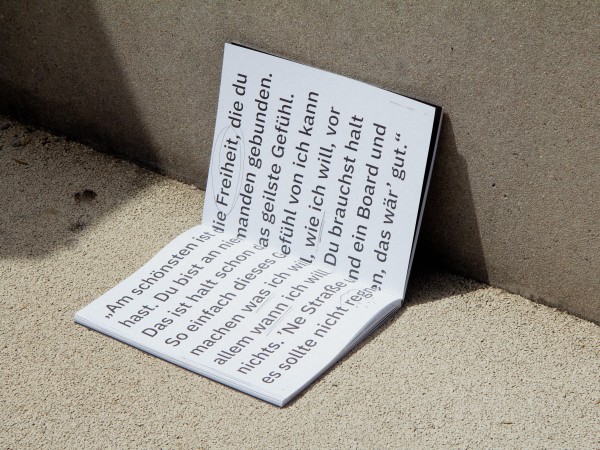 „Am schönsten ist die Freiheit, die du
hast. Du bist an niemanden gebunden.
Das ist halt schon das geilste Gefühl.
So einfach dieses Gefühl von ich kann
machen was ich will, wie ich will, vor
allem wann ich will. Du brauchst halt
nichts. 'Ne Straße und ein Board und
es sollte nicht regnen, das wär' gut.“